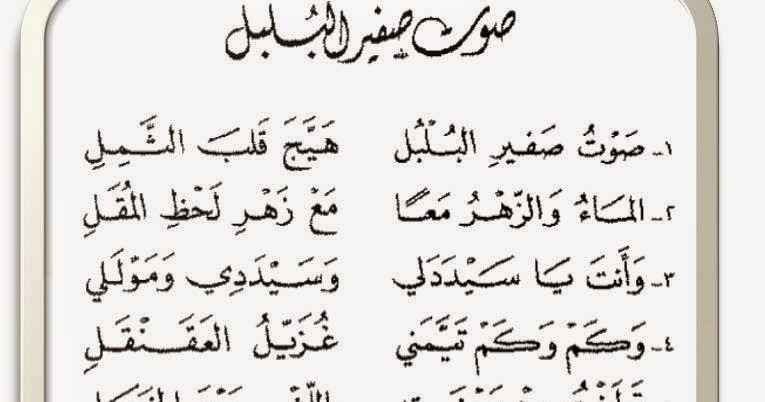 صوت صفير البلبل
١- صَوْتُ صَفيرِ البُلْبُلِ هَيَّجَ قَلبَ الثَّمِلِ
٢- المَاءُ وَالزَّهْرُ مَعًا مَعْ زَهْرِ لَحْظِ المُقَلِ
٣- وَأَنتَ يَا سَيْدَدَلي وَسَيْدَدِي وَمَوْلَلي
٤- وَكَمْ وَكَمْ تَيَّمَني غُزَيّلُ العَقَنْقَلِ